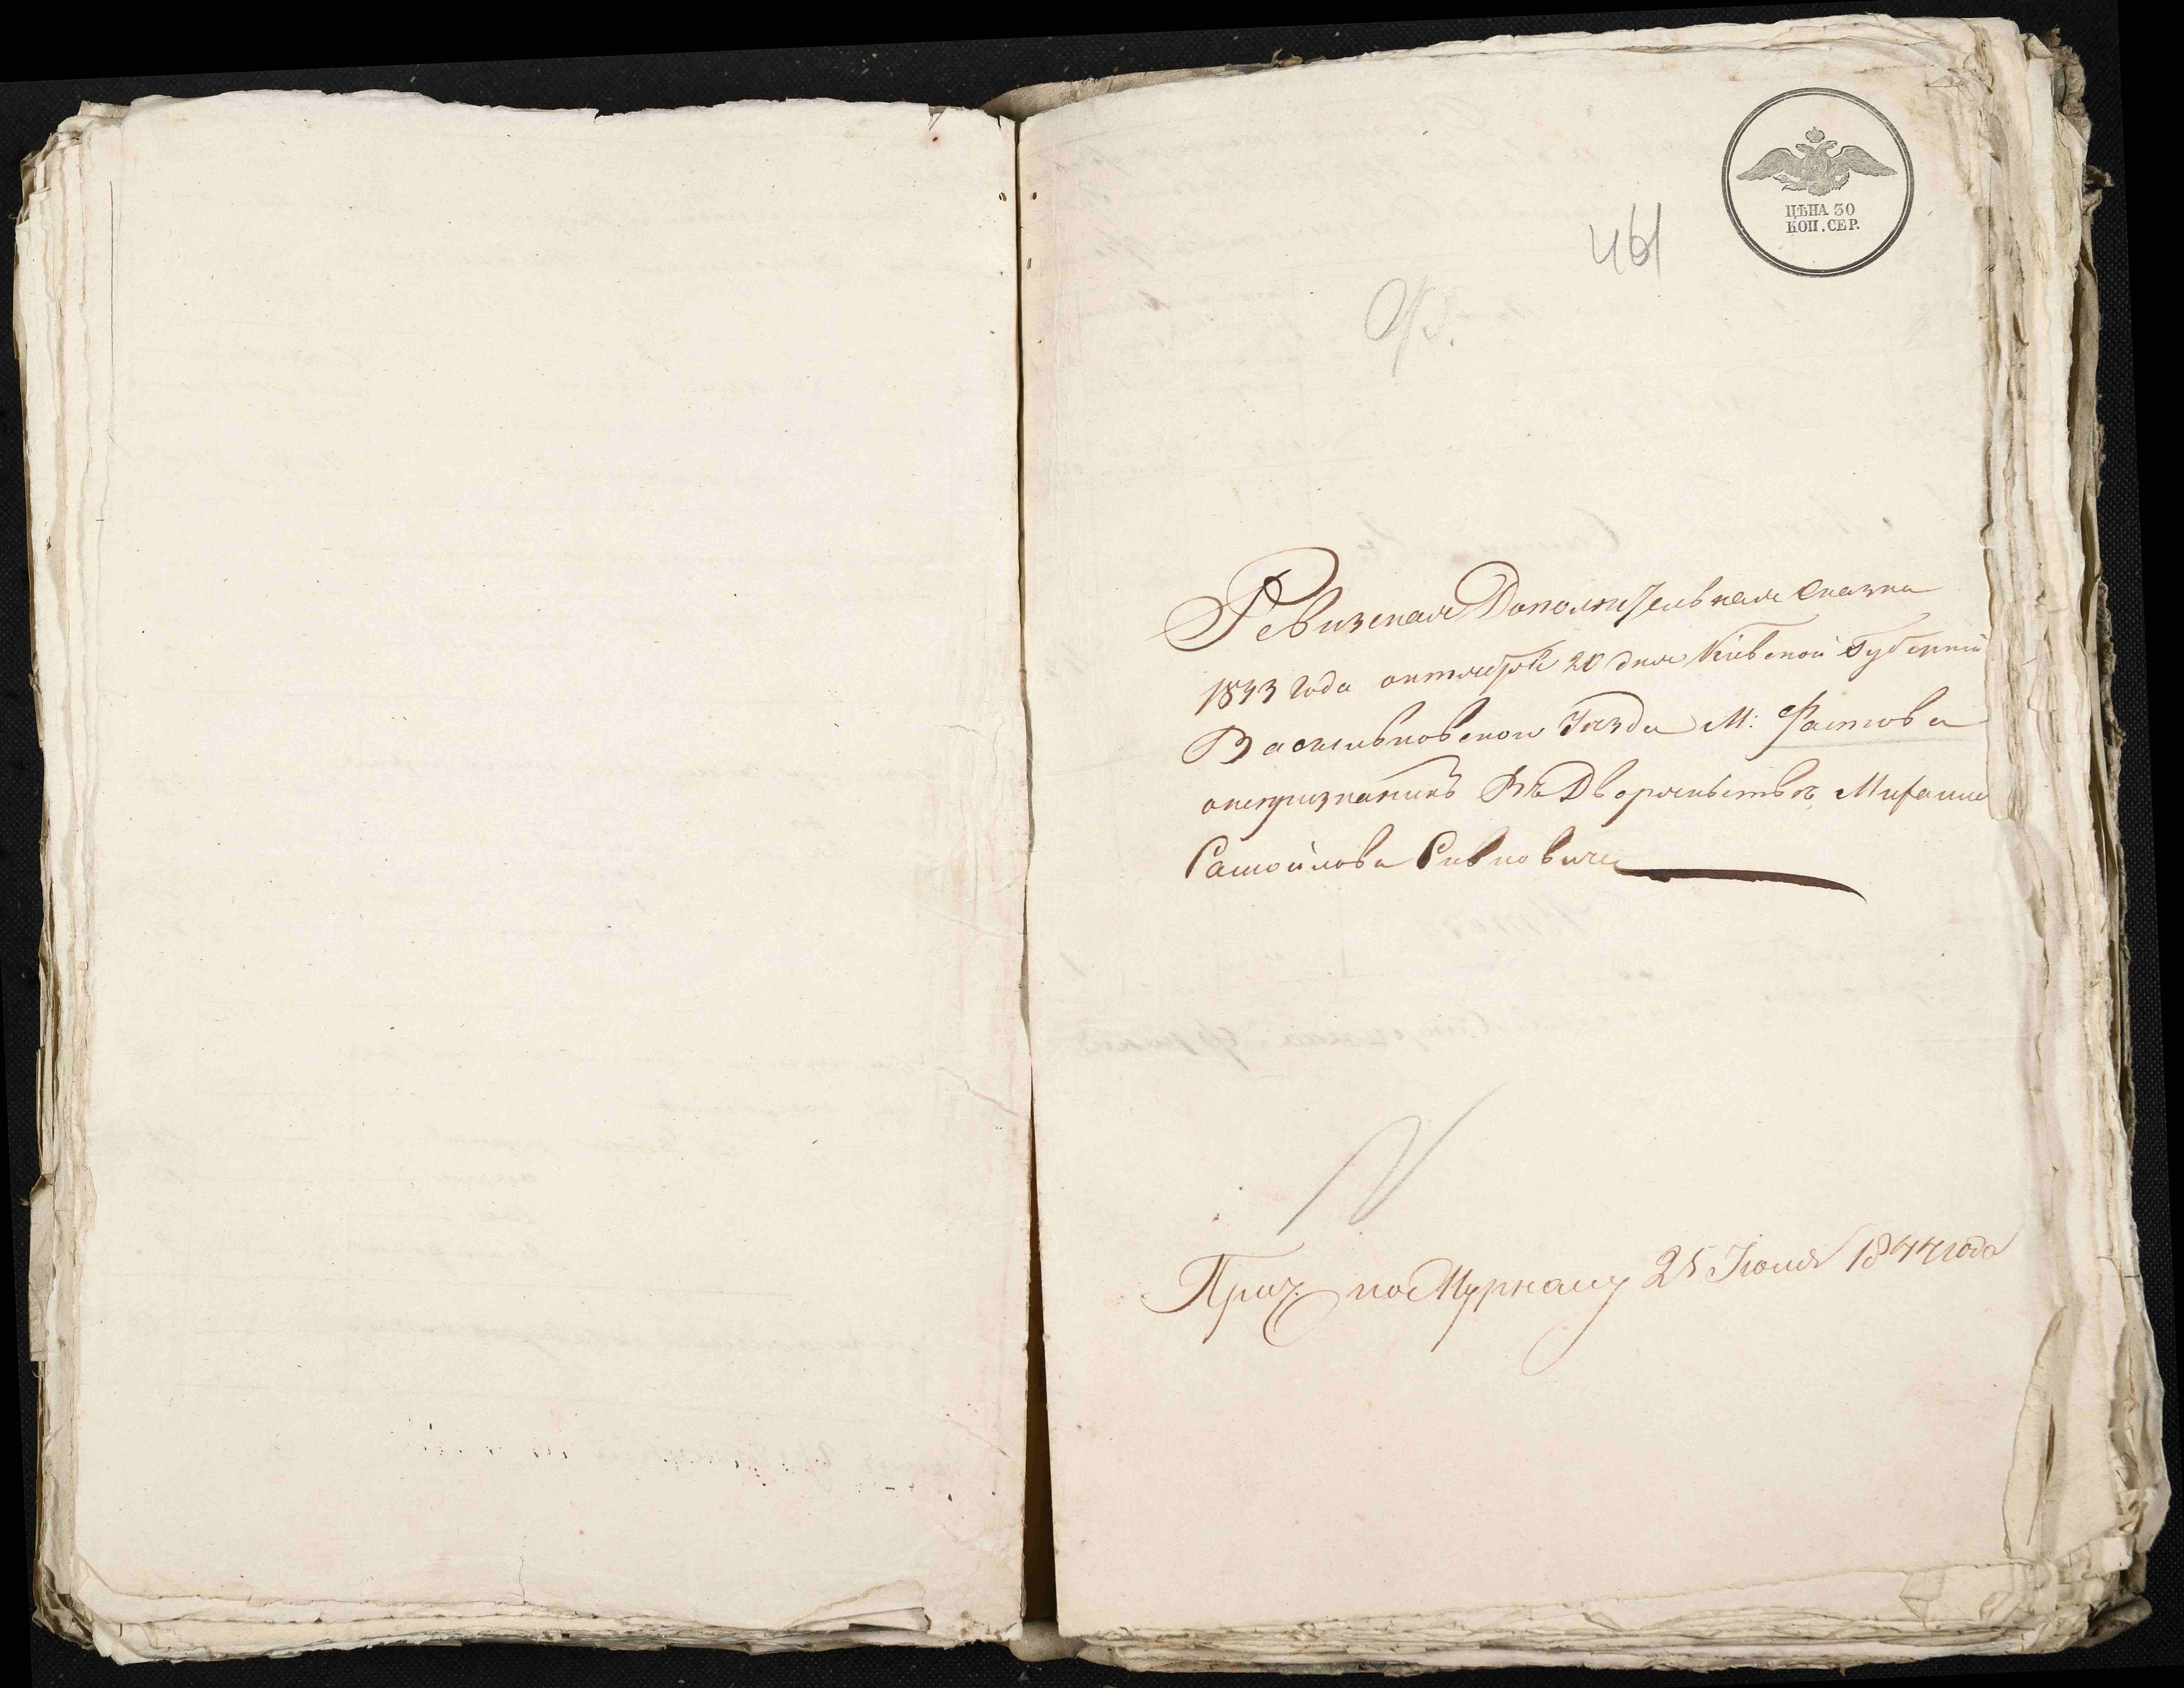 ЦѢНА 30
КОП. СЕР.
461
Ф.
Ревизская Дополнительная сказка
1843 года октября 20 дня Кіевской Губерніи
Васильковского Уезда М: Фастова
онепризнанимъ Въ Дворянствѣ Михаиле
Самойлова Савковича
По Журналу 25 Іюля 1844 года